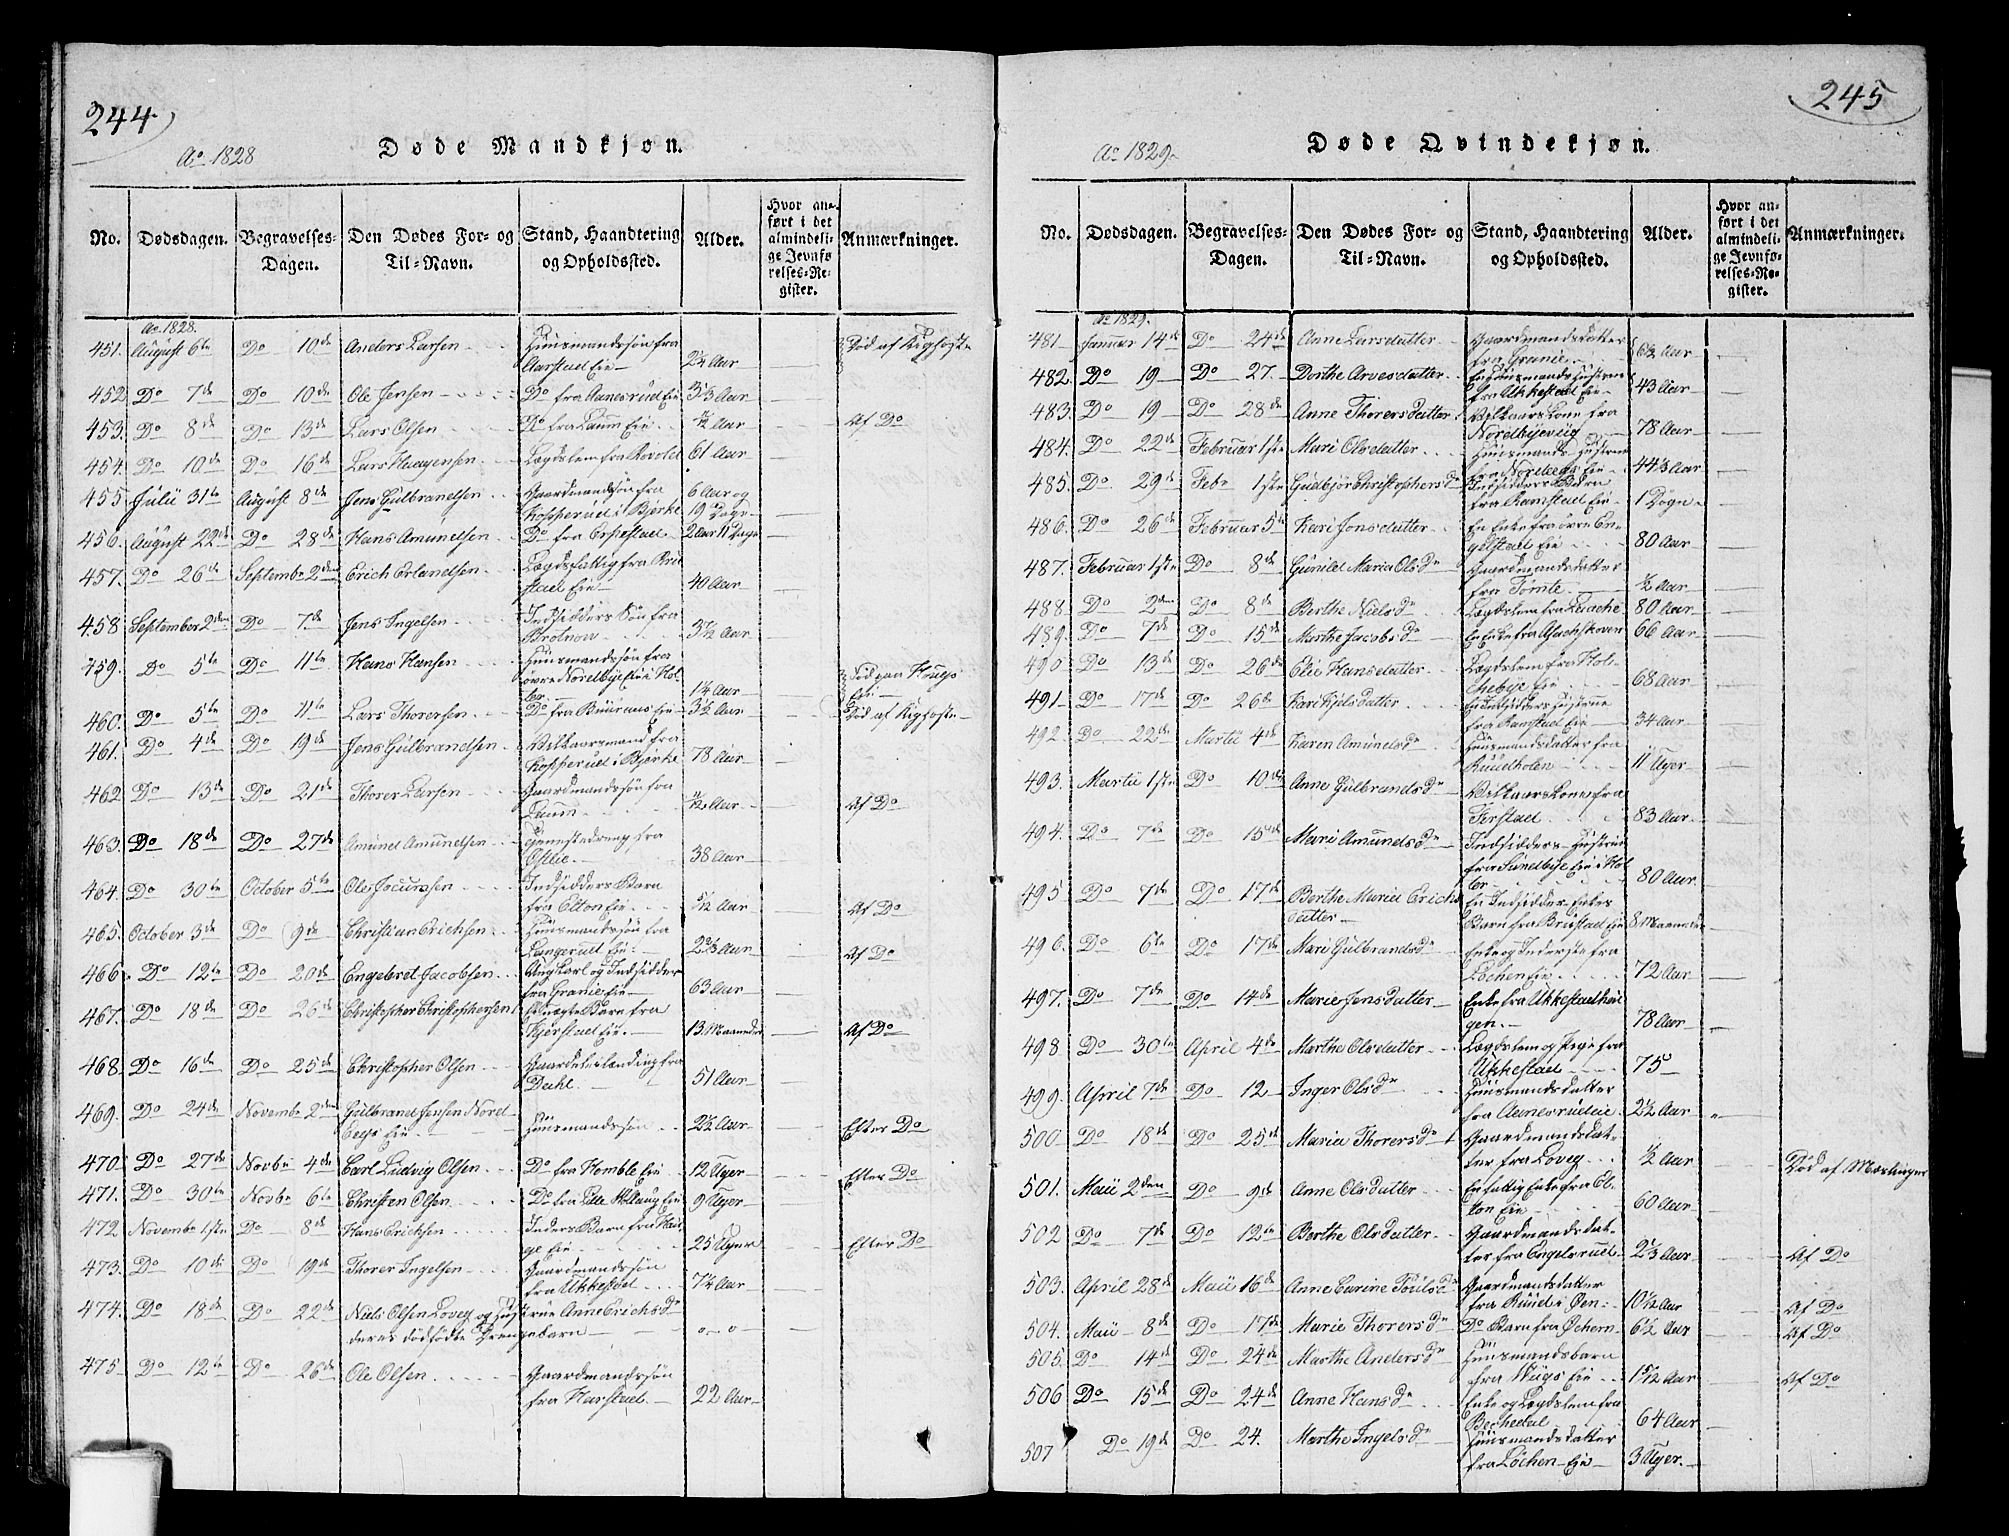 244
Ao 1828
Døde Mandkjøn.
No.
Dødsdagen.
Begravelses-Dagen.
Den Dødes For- og Til-Navn.
Stand, Haandtering og Opholdssted.
Alder.
Hvor anført i det almindelige Jevnførelses-Register.
Anmærkninger.
Ao 1828.
451. August 6te Do 10de Anders Larsen Huusmandssøn fra Aarstad Eie 2¼ Aar Død af Kighoste
452 Do 7de Do 10de Ole Jensen Do fra Aanesrud Eie 3⅓ Aar
453. Do 8de Do 13de Lars Olsen Do fra Laum Eie Aar Af Do
454. Do 10de Do 16de Lars Haagensen Lægdslem fra Rovold 61 Aar
455 Julii 31te August 8de Jens Gulbrandsen Gaardmandssøn fra Kopperud i Bjerke 6 Aar og 19 Dage
456. August 22de Do 28de Hans Amundsen Do fra Espestad 2 Aar 11 Dage
457. Do 26de Septembr 2den Erich Erlandsen Lægdsfattig fra Bristad Eie 40 Aar
458 September 2den Do 7de Jens Ingelsen Indsidders Søn fra Brotnow 3½ Aar
459. Do 5te Do 11te Hans Hansen Huusmandssøn fra øvre Nordbye Eie i Holter 1¼ Aar Død paa Hougs Eie
460. Do 5te Do 11te Lars Thorersen Do fra Buuraas Eie 3½ Aar Død af Kighoste
461. Do 4de Do 19de Jens Gulbrandsen Vilkaarsmand fra Kopperud i Bjerke 78 Aar
462 Do 13de Do 21de Thorer Larsen Gaardmandssøn fra Laum Aar Af Do
463. Do 18de Do 27de Amund Amundsen Tjenestedreng fra Østlie 38 Aar
464. Do 30te October 5te Ole Jocumsen Indsidders Barn fra Elton Eie 5/12 Aar Af Do
465. October 3de Do 9de Christian Erichsen Huusmandssøn fra Langerud Eie 2⅔ Aar Af Do
466. Do 12te Do 20de Engebret Jacobsen Ungkarl og Indsidder fra Granie Eie 63 Aar
467. Do 18de Do 26de Christopher Christophersen Et uægte Barn fra Kjerstad Eie 13 Maaneder Af Do
468. Do 16de Do 25de Christopher Olsen Gaardet ilænding fra Dahl 51 Aar
469. Do 24de Novembr 2den Gulbrand Jensen Nord Eegs Eie Huusmandssøn 2½ Aar Efter Do
470. Do 27de Novbr 4de Carl Ludvig Olsen Do fra Homble Eie 12 Uger Efter Do
471. Do 30te Novbr 6te Christen Olsen Do fra Lille Houug Eie 9 Uger
472 Novembr 1ste Do 8de Hans Erichsen Inders. Barn fra Hauge Eie 25 Uger Efter Do
473. Do 10de Do 19de Thorer Ingelsen Gaardmandssøn fra Ukkestad 7¼ Aar
474. Do 18de Do 22de Niels Olsen Loveg og Hustrue Anne Erichs Dr
deres dødfødte Drengebarn 0-0
475. Do 12te Do 26de Ole Olsen Gaardmandssøn fra Harstad 22 Aar
245
Ao 1829
Døde Qvindekjøn.
No.
Dødsdagen.
Begravelses-Dagen.
Den Dødes For- og Til-Navn.
Stand, Haandtering og Opholdssted.
Alder.
Hvor anført i det almindelige Jevnførelses-Register.
Anmærkninger.
Ao 1829.
481 Januar 14de Do 24de Anne Larsdatter Gaardmandsdatter fra Granie 6½ Aar
482. Do 19 Do 27. Dorthe Arvesdatter En Huusmands Hustrue fra Ukkestad Eie 43 Aar
483. Do 19 Do 28de Anne Thorersdatter Vilkaars Kone fra Nordbyevug 78 Aar
484. Do 22de Februar 1ste Mari Olsdatter Huusmands Hustrue fra Nordeegs Eie 44⅓ Aar
485. Do 29de Febr 1ste Gudbjør Christophers Dr Indsidders Barn fra Ramstad Eie 1 Døgn
486. Do 26de Februar 5te Kari Jonsdatter En Enke fra øvre Engelstad Eie 80 Aar
487. Februar 1ste Do 8de Gunild Maria Ols Dr Gaardmandsdatter fra Tømte ½ Aar
488 Do 2den Do 8de Berthe Niels Dr Lægdslem fra Lauche 80 Aar
489. Do 7de Do 15de Marthe Jacobs Dr En Enke fra Aschskoven 66 Aar
490 Do 13de Do 26de Elie Hansdatter Lægdslem fra Holchebye Eie 68 Aar
491 Do 17de Do 26de Kari Kjelsdatter Indsidders Hustrue fra Ramstad Eie 34 Aar
492. Do 22de Martii 4de Karen Amunds Dr Huusmandsdatter fra Ruudholen 11 Uger
493. Martii 1ste Do 10de Anne Gulbrands Dr Vilkaars Kone fra Ferstad 83 Aar
494. Do 7de Do 15de Mari Amunds Dr Indsidders Hustrue fra Sundbye Eie i Holter 80 Aar
495 Do 7de Do 17de Berthe Maria Erichsdatter En Indsidder Enkes Barn fra Bristad Eie 8 Maaneder
496. Do 6te Do 17de Mari Gulbrands Dr Enke og Inderste fra Løchen Eie 72 Aar
497. Do 7de Do 14de Marie Jensdatter Enke fra Ukkestadheiegen 78 Aar
498 Do 30te April 4de Marthe Olsdatter Lægdslem og Pige fra Ukkestad 75
499. April 7de Do 12 Inger Ols Dr Huusmandsdatter fra Aanesrud eie 2½ Aar
500 Do 18de Do 25de Maria Thorers Dr Gaardmandsdatter fra Loveg ½ Aar Død af Mæslinger
501. Maii 2den Do 9de Anne Olsdatter En fattig Enke fra Elton Eie 60 Aar
502 Do 7de Do 12te Berthe Olsdatter Gaardmandsdatter fra Engelsrud 2⅓ Aar Af Do
503. April 28de Maii 16de Anne Carine Pouls Dr Gaardmandsdatter fra Ruud i Øen 10½ Aar Af Do
504. Maii 8de Do 17de Marie Thorers Dr Do Barn fra Øchern 6½ Aar Af Do
505. Do 14de Do 24de Marthe Anders Dr Huusmandsbarn fra Wugs Eie 1 5/12 Aar Af Do
506 Do 15de Do 24de Anne Hans Dr Enke og Lægdslem fra Bechedal 64 Aar
507 Do 19de Do 24. Marthe Ingels Dr Huusmandsdatter fra Løchen Eie 3 Uger.